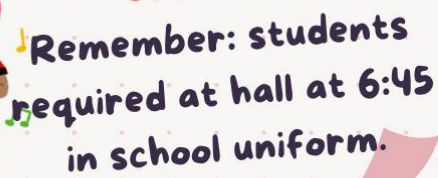 Remember: students
required at hall at 6:45
in school uniform.